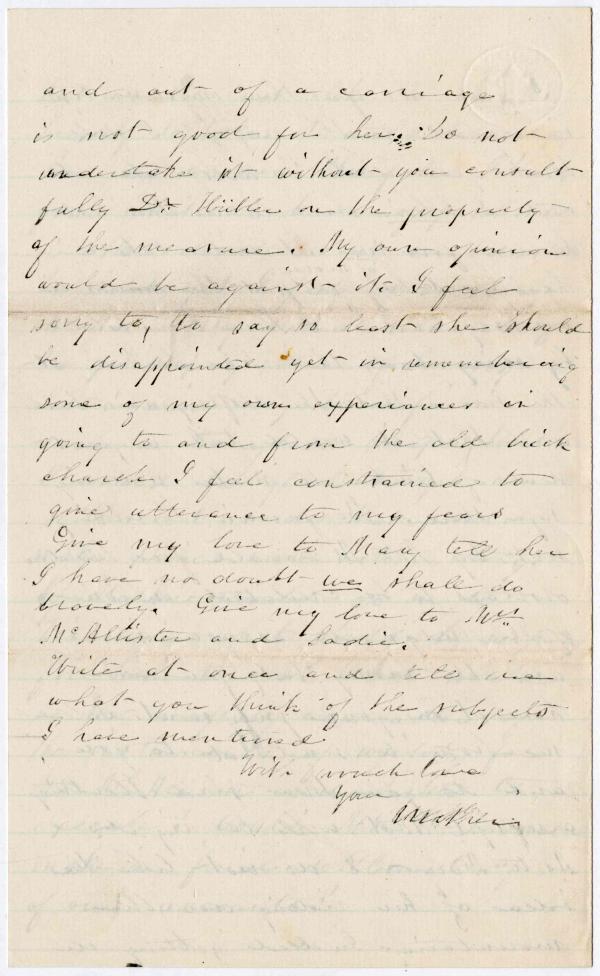 and out of a carriage
is not good for her. Do not
undertake it without you consult
fully Dr. Hüller on the propriety
of the measure. My own opinion
would be against it. I feel
sorry to, to say so least she should
be disappointed yet in remembering
some of my own experiances in
going to and from the old brick
church I feel constrained to
give utterance to my fears
Give my love to Mary tell her
I have no doubt we shall do
bravely. Give my love to Mrs
McAllister and Sadie.
Write at once and tell me
what you think of the subjects
I have mentioned.
With much love
Your
Mother